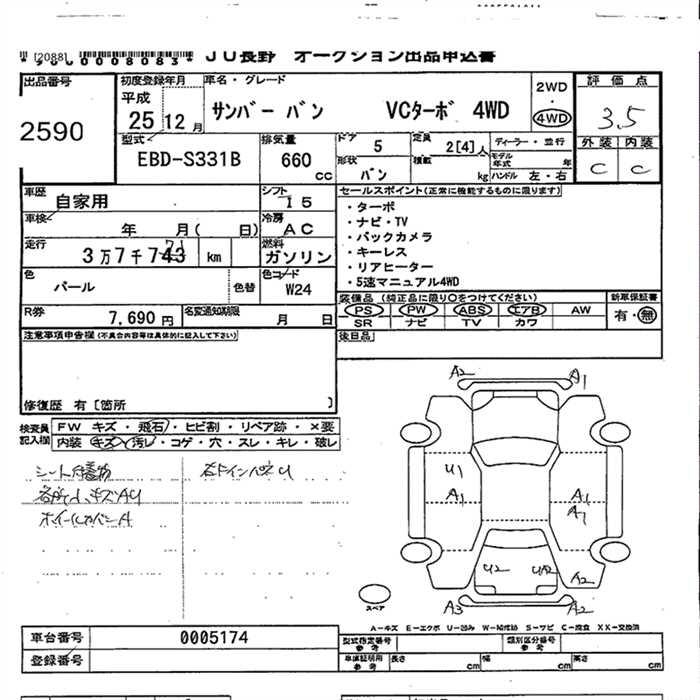 [2088] *9000008083* JU長野 オークション出品申込書
出品番号 2590
初度登録年月 平成 25 12 月
車名・グレード サンバー バン VCターボ 4WD
2WD ・ 4WD
評価点 3.5
外装 内装
C C
型式 EBD-S331B
排気量 660 cc
ドア 5
形状 バン
定員 2[4]人
積載 kg
ディーラー・並行
モデル年式 年
ハンドル 左・右
車歴 自家用
シフト I5
セールスポイント(正常に機能するものに限ります)
・ターボ
・ナビ・TV
・バックカメラ
・キーレス
・リアヒーター
・5速マニュアル4WD
車検 年 月( 日)
冷房 AC
走行 3万7千743 71 km
燃料 ガソリン
色 パール 色替
色コード W24
R券 7,690円
名変通知期限 月 日
装備品(純正品に限り○をつけてください)
PS PW ABS エアB AW
SR ナビ TV カワ
新車保証書 有・無
後日品
注意事項申告欄(不具合内容等は具体的に記入して下さい)
修復歴 有〔箇所 〕
検査員記入欄
FW キズ・飛石・ヒビ割・リペア跡・×要
内装 キズ・汚レ・コゲ・穴・スレ・キレ・破レ
各所小キズAU
ホイールカバーA
A2 A1
U1
A1 A1
A1
U2 UA2 A2
A3 A2
スペア
A-キズ E-エクボ U-凹み W-補修跡 S-サビ C-腐食 XX-交換済
車台番号 0005174
登録番号
型式指定番号 参考
類別区分番号 参考
車庫証明用 参考 長さ cm 幅 cm 高さ cm